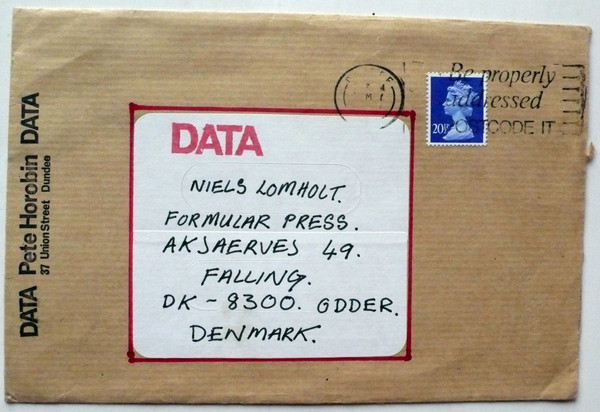 DATA Pete Horobin DATA
37 Union Street Dundee
Be properly
addressed
POSTCODE IT
20P
DATA
NIELS LOMHOLT.
FORMULAR PRESS.
AKJAERVEJ 49.
FALLING.
DK - 8300. ODDER.
DENMARK.